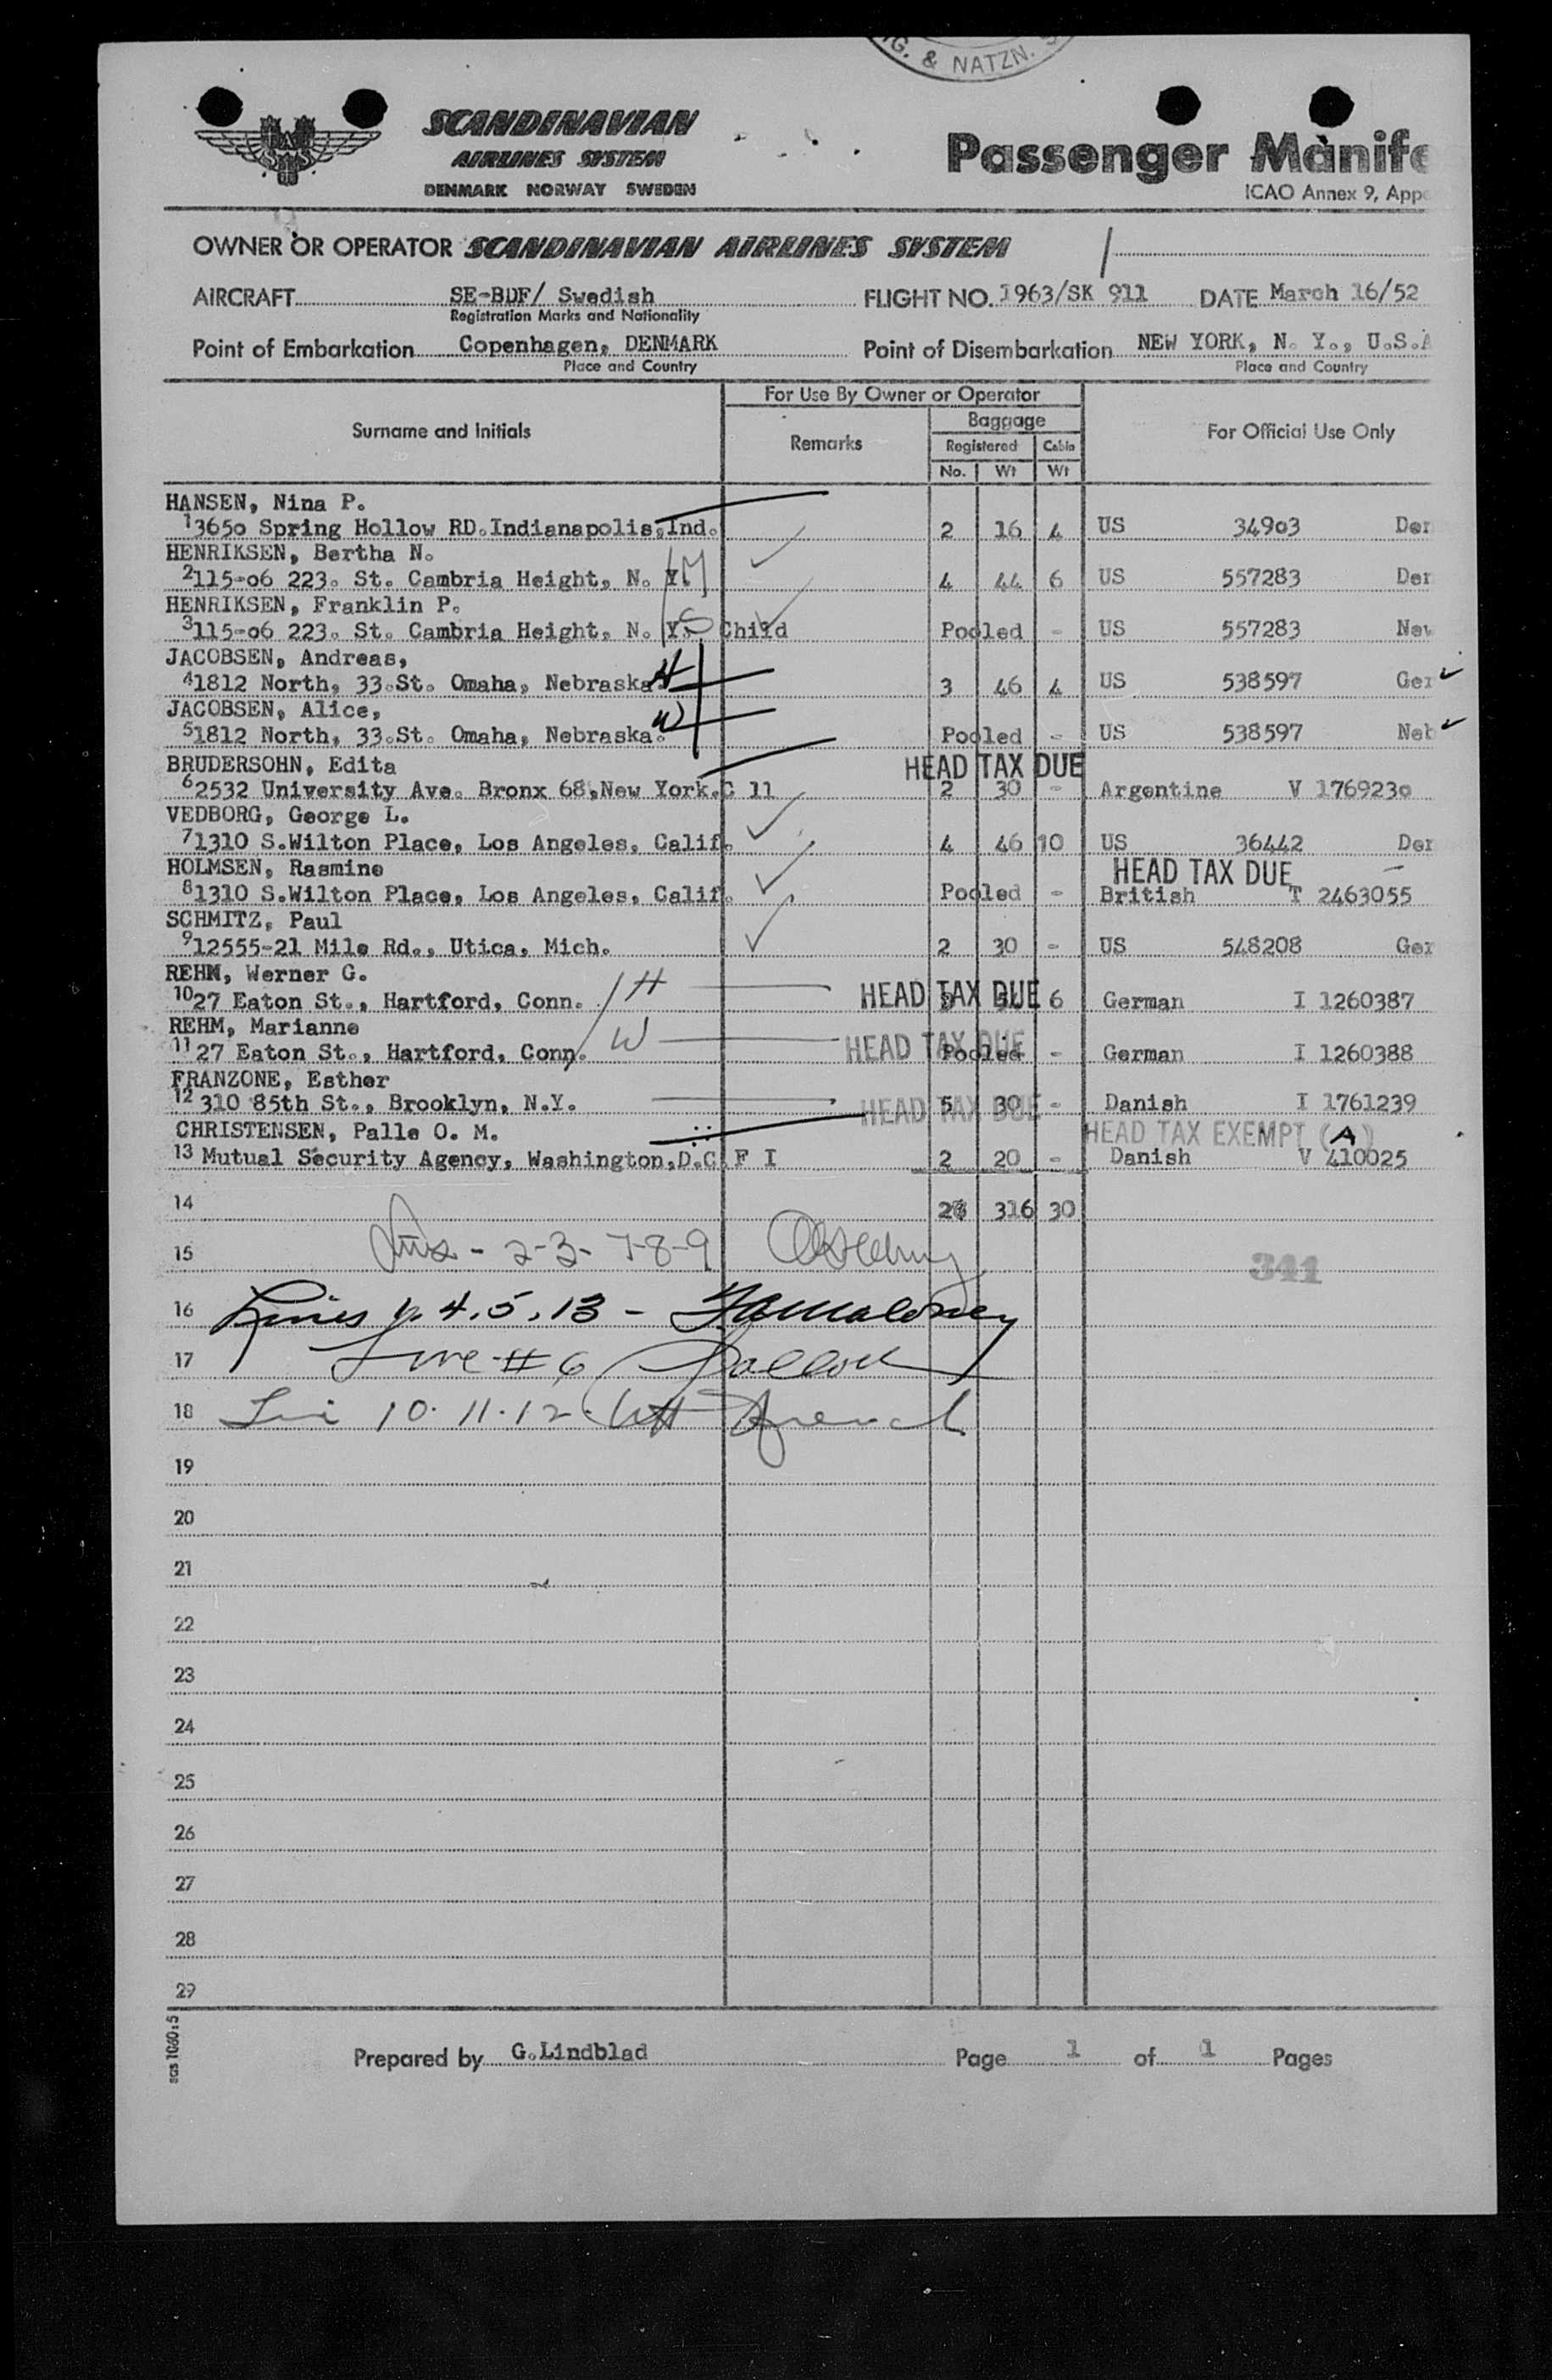 IG. & NATZN. S
SCANDINAVIAN
AIRLINES SYSTEM
DENMARK NORWAY SWEDEN
Passenger Manife
ICAO Annex 9, Appe
OWNER OR OPERATOR SCANDINAVIAN AIRLINES SYSTEM
AIRCRAFT SE-BDF/ Swedish FLIGHT NO. 1963/SK 911 DATE March 16/52
Registration Marks and Nationality
Point of Embarkation Copenhagen, DENMARK Point of Disembarkation NEW YORK, N. Y., U.S.A
Place and Country Place and Country
For Use By Owner or Operator
Surname and Initials Remarks Baggage For Official Use Only
Registered Cabin
No. Wt Wt
HANSEN, Nina P.
1 3650 Spring Hollow RD. Indianapolis, Ind. 2 16 4 US 34903 Den
HENRIKSEN, Bertha N.
2 115-06 223. St. Cambria Height, N. Y. M 4 44 6 US 557283 Den
HENRIKSEN, Franklin P.
3 115-06 223. St. Cambria Height, N. Y. S Child Pooled - US 557283 New
JACOBSEN, Andreas,
4 1812 North, 33.St. Omaha, Nebraska. H 3 46 4 US 538597 Ger
JACOBSEN, Alice,
5 1812 North, 33.St. Omaha, Nebraska. W Pooled - US 538597 Neb
BRUDERSOHN, Edita HEAD TAX DUE
6 2532 University Ave. Bronx 68, New York. C 11 2 30 - Argentine V 1769230
VEDBORG, George L.
7 1310 S.Wilton Place, Los Angeles, Calif. 4 46 10 US 36442 Den
HOLMSEN, Rasmine HEAD TAX DUE
8 1310 S.Wilton Place, Los Angeles, Calif. Pooled - British T 2463055
SCHMITZ, Paul
9 12555-21 Mile Rd., Utica, Mich. 2 30 - US 548208 Ger
REHM, Werner G.
10 27 Eaton St., Hartford, Conn. H HEAD TAX DUE 6 German I 1260387
REHM, Marianne
11 27 Eaton St., Hartford, Conn. W HEAD TAX DUE Pooled - German I 1260388
FRANZONE, Esther
12 310 85th St., Brooklyn, N.Y. HEAD TAX DUE 5 30 - Danish I 1761239
CHRISTENSEN, Palle O. M. HEAD TAX EXEMPT (A)
13 Mutual Security Agency, Washington,D.C. F I 2 20 - Danish V 410025
14 316 30
15 - 2-3-7-8-9 341
16 Lines 1. 4. 5. 13 - Maloney
17 Line #6
18 10. 11. 12. French
19
20
21
22
23
24
25
26
27
28
29
sas 1080:5
Prepared by G.Lindblad Page 1 of 1 Pages